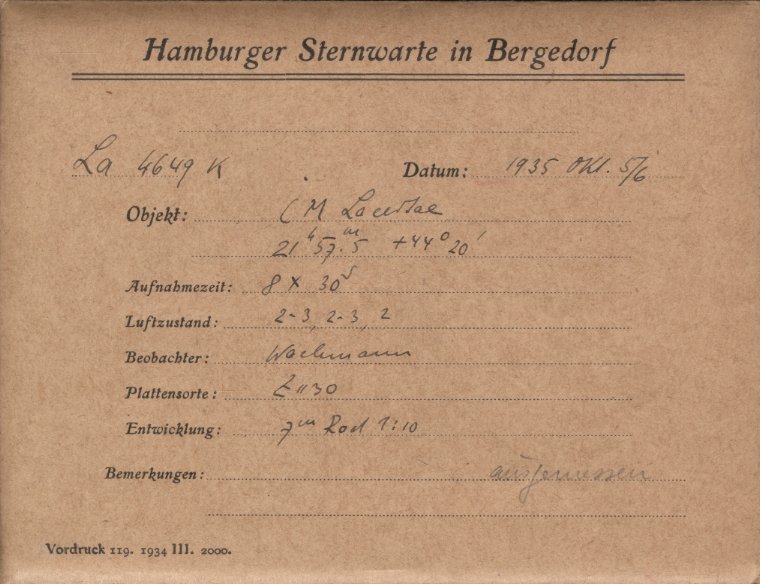 Hamburger Sternwarte in Bergedorf
La 4649 K Datum: 1935 Okt. 5/6
Objekt: CM Lacertae
21ʰ57ᵐ.5 +44⁰20'
Aufnahmezeit: 8 x 30ˢ
Luftzustand: 2-3, 2-3, 2
Beobachter: Wachmann
Plattensorte:
Entwicklung: 7ᵐ Rod 1:10
Bemerkungen: ausgemessen
Vordruck 119. 1934 III. 2000.